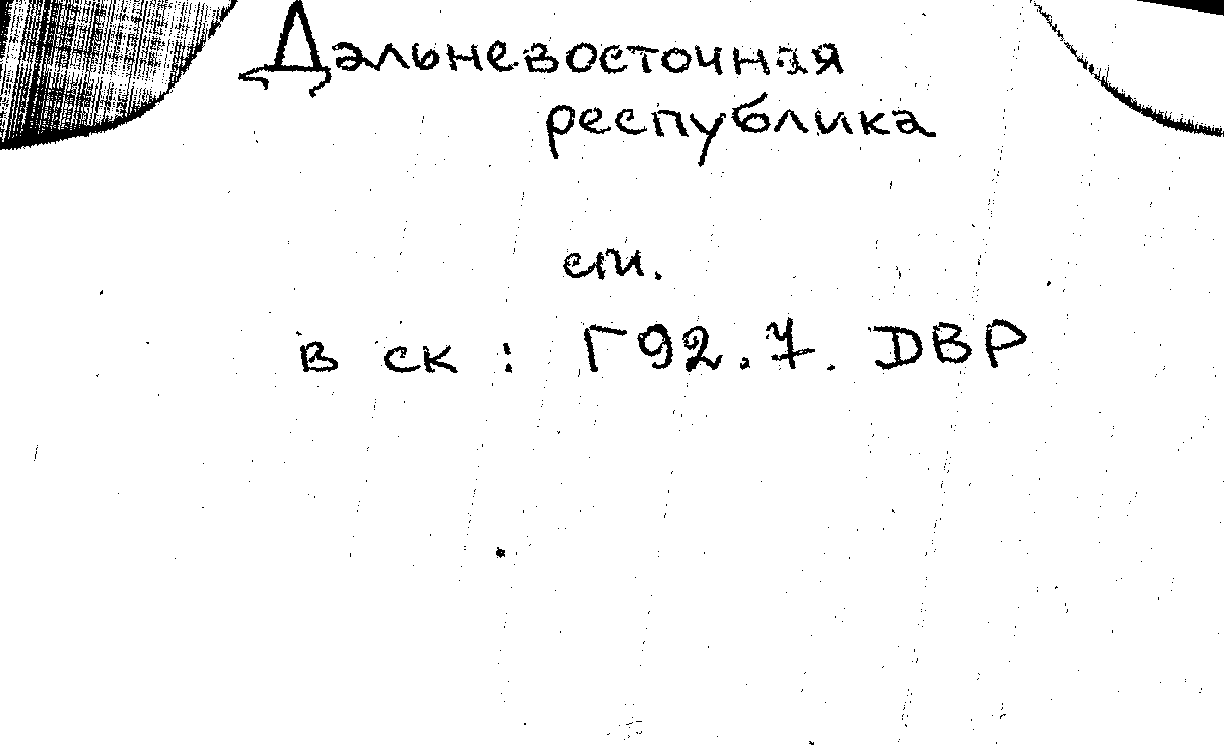 Дальневосточная
республика
см.
в ск : Г92.7. DВР